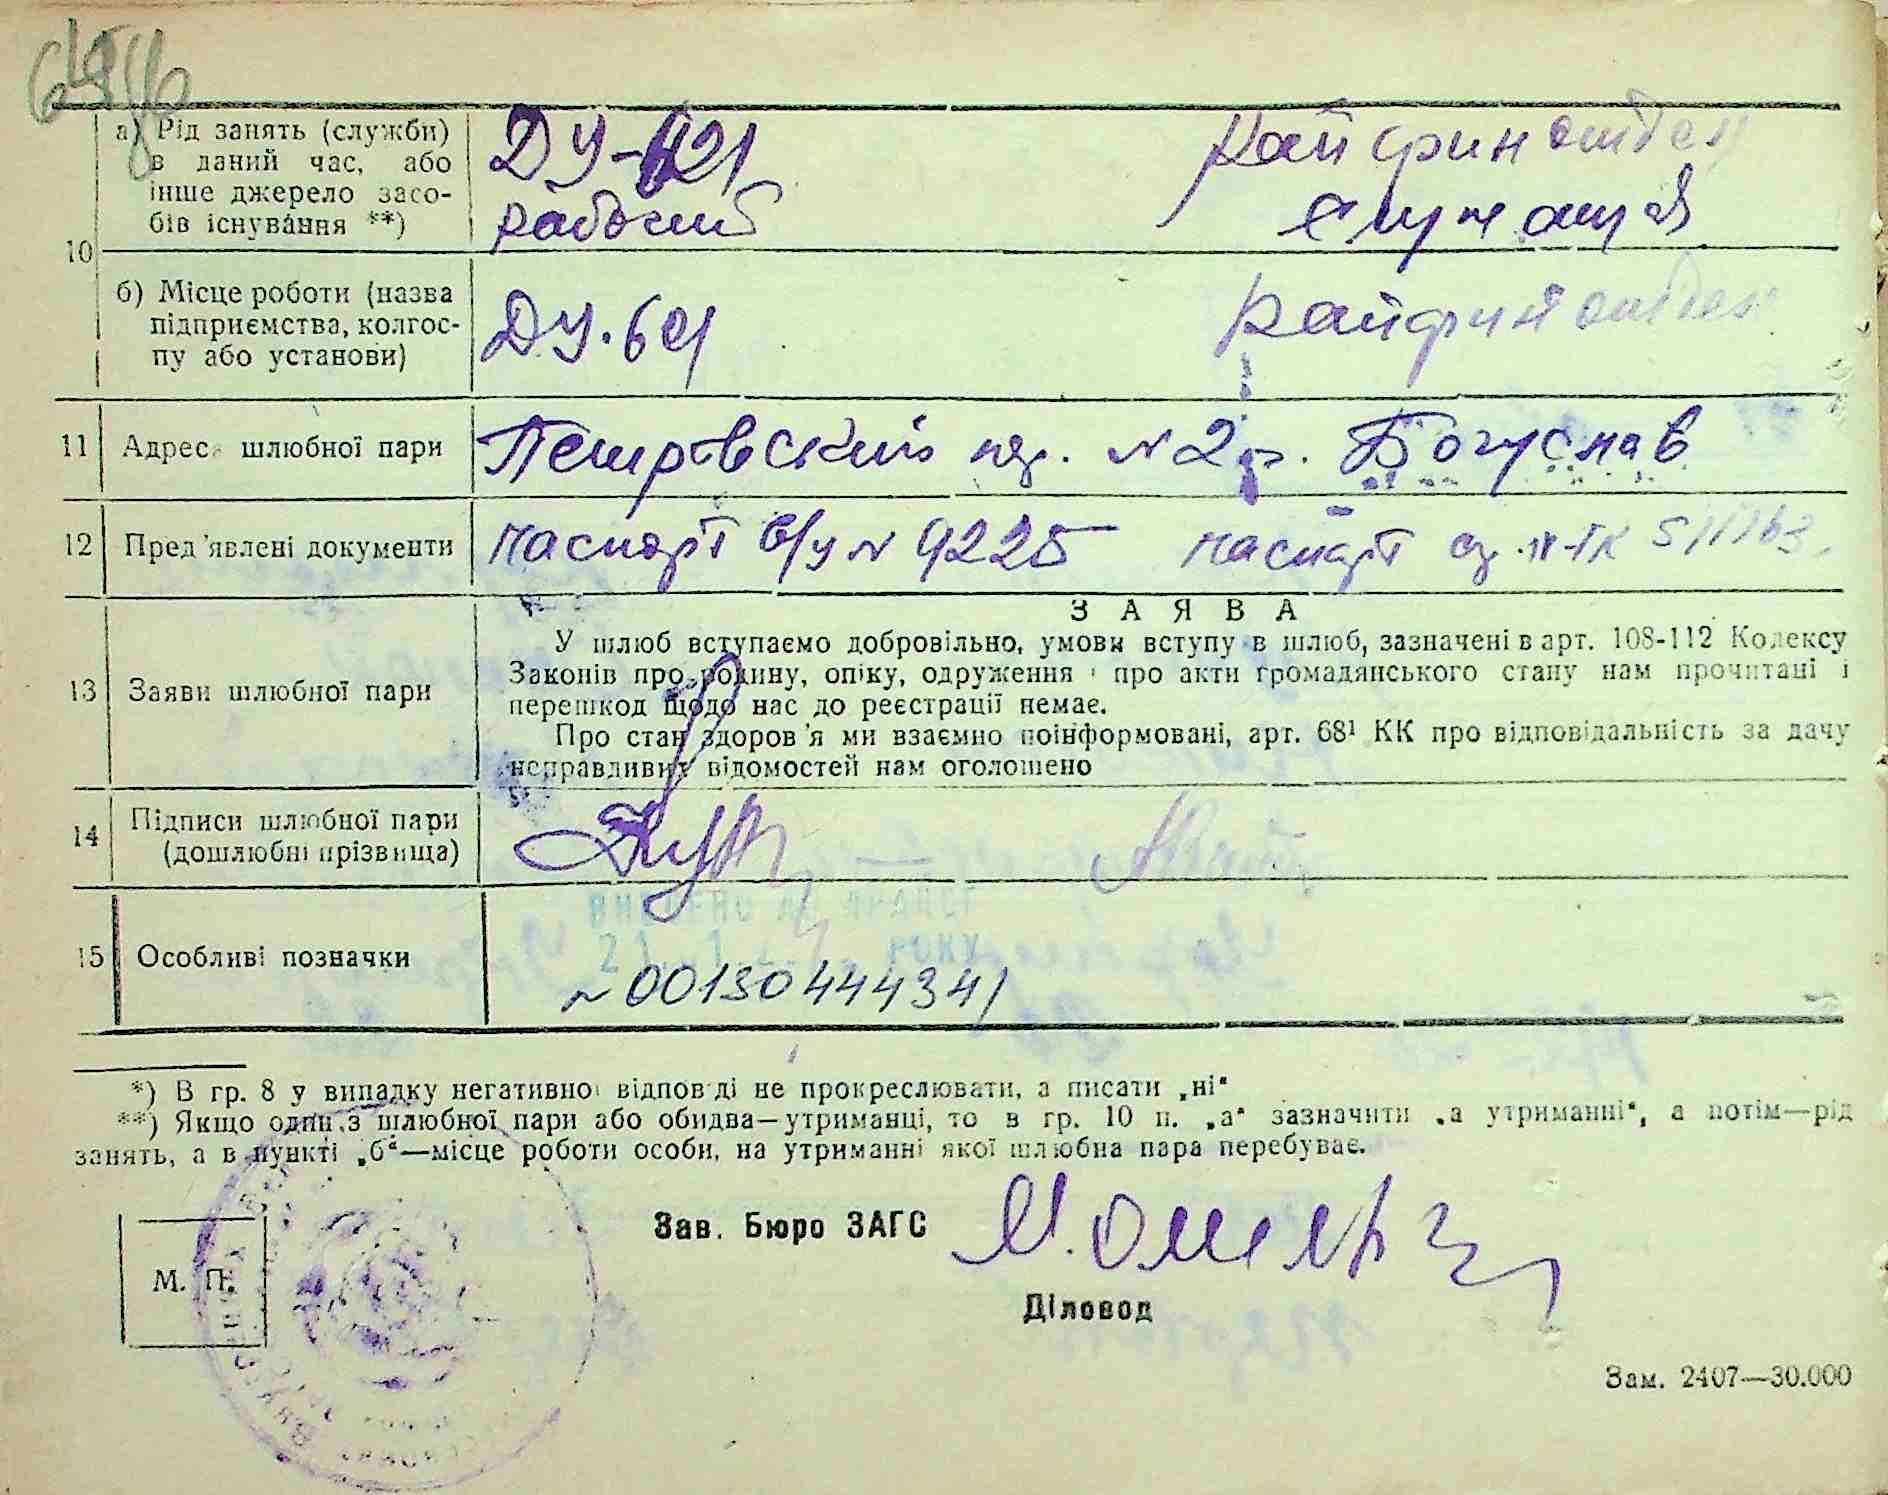 10
а) Рід занять (служби)
в даний час, або
інше джерело засо-
бів існування **)
ДУ-621
рабочий
Райфинотдел
служащая
б) Місце роботи (назва
підприємства, колгос-
пу або установи)
ДУ-601
Райфинотдел
11 Адреса шлюбної пари Петровский пер. №2 г. Богуслав
12 Пред'явлені документи паспорт б/у № 9225 паспорт
13 Заяви шлюбної пари
ЗАЯВА
У шлюб вступаємо добровільно, умови вступу в шлюб, зазначені в арт. 108-112 Кодексу
Законів про родину, опіку, одруження і про акти громадянського стану нам прочитані і
перешкод щодо нас до реєстрації немає.
Про стан здоров'я ми взаємно поінформовані, арт. 68¹ КК про відповідальність за дачу
неправдивих відомостей нам оголошено
14 Підписи шлюбної пари
(дошлюбні прізвища)
15 Особливі позначки
РОКУ
~00130444341
*) В гр. 8 у випадку негативної відповіді не прокреслювати, а писати „ні“
**) Якщо один з шлюбної пари або обидва—утриманці, то в гр. 10 п. „а“ зазначити „а утриманні“, а потім—рід
занять, а в пункті „б“—місце роботи особи, на утриманні якої шлюбна пара перебуває.
Зав. Бюро ЗАГС
М. П.
Діловод
Зам. 2407—30.000